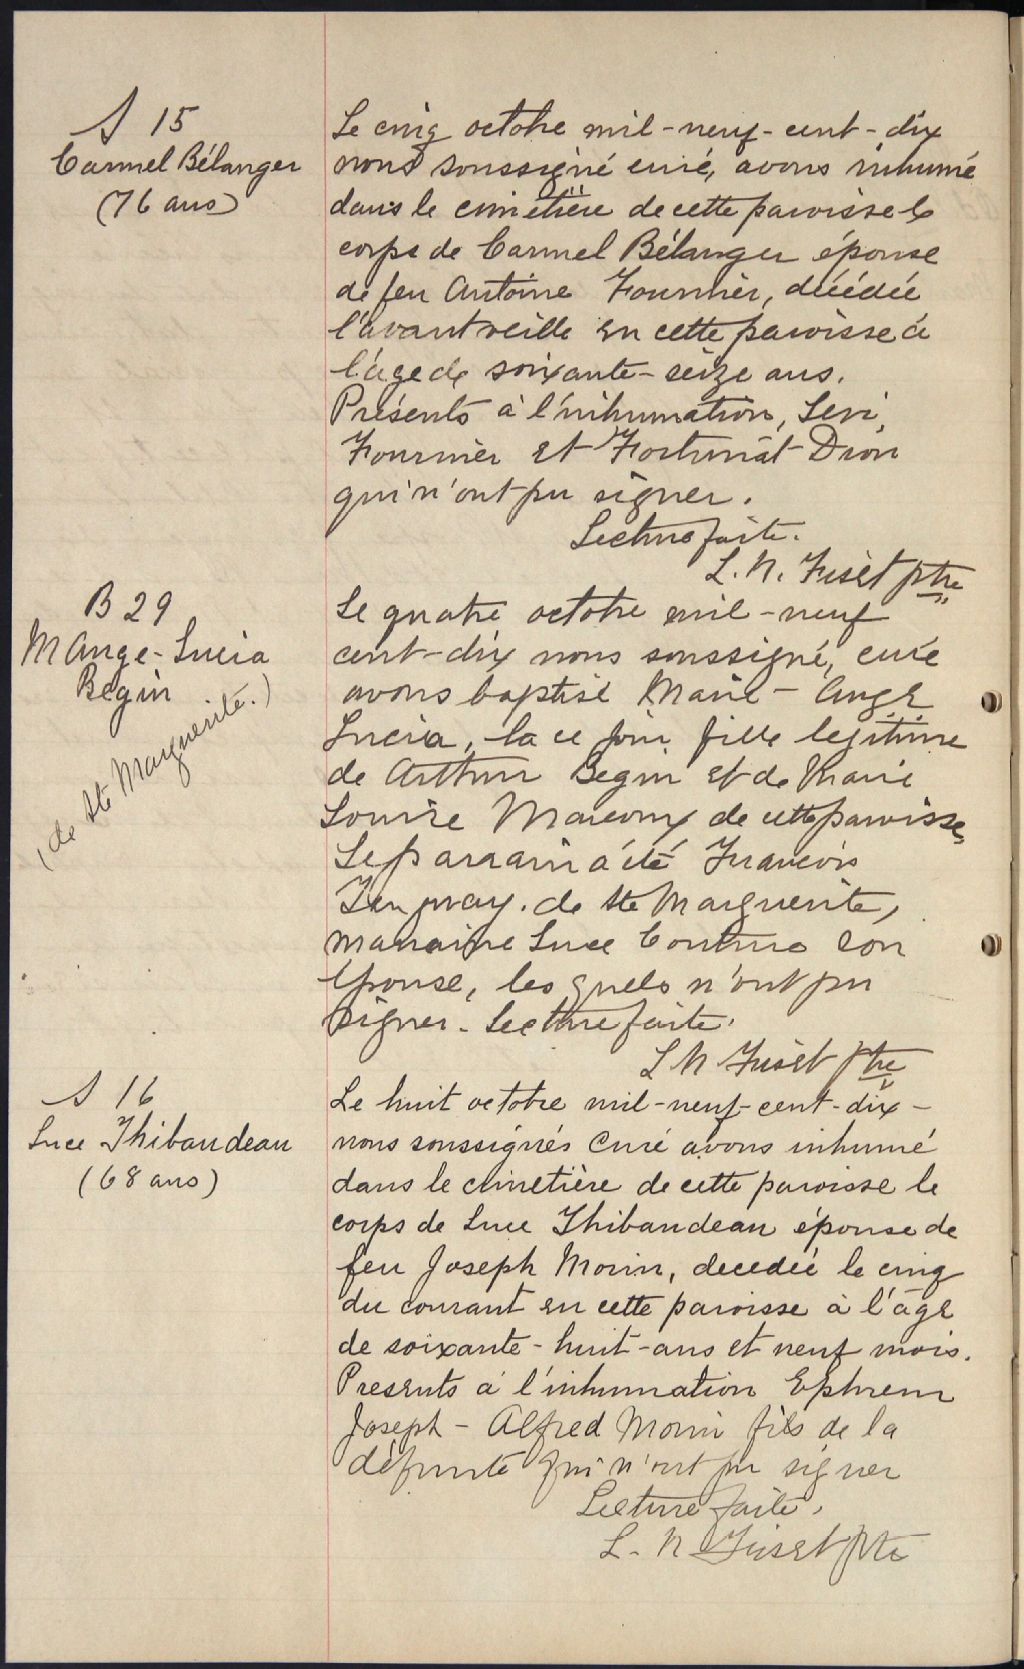 S 15
Carmel Bélanger
(76 ans)
Le cinq octobre mil-neuf-cent-dix
nous soussigné curé, avons inhumé
dans le cimetière de cette paroisse le
corps de Carmel Bélanger épouse
de feu Antoine Fournier, décédée
l'avant veille en cette paroisse à
l'age de soixante-seize ans.
Présents à l'inhumation, Levi
Fournier et Fortunat Dion
qui n'ont pu signer.
Lecture faite.
L. N. Fiset ptre
B 29
M Ange-Lucia
Begin
(de Ste Marguerite.)
Le quatre octobre mil-neuf
cent-dix nous soussigné, curé
avons baptisé Marie-Ange
Lucia, née ce jour fille legitime
de Arthur Begin et de Marie
Louise Marcoux de cette paroisse
Le parrain a été Francois
de Ste Marguerite,
marraine Luce Couture son
épouse, lesquels n'ont pu
signer. Lecture faite.
L N Fiset ptre
S 16
Luce Thibaudeau
(68 ans)
Le huit octobre mil-neuf-cent-dix-
nous soussignés Curé avons inhumé
dans le cimetière de cette paroisse le
corps de Luce Thibaudeau épouse de
feu Joseph Morin, decedée le cinq
du courant en cette paroisse à l'âge
de soixante-huit-ans et neuf mois.
Presents à l'inhumation Ephrem
Joseph-Alfred Morin fils de la
défunte qui n'ont pu signer
Lecture faite.
L. N Fiset ptre